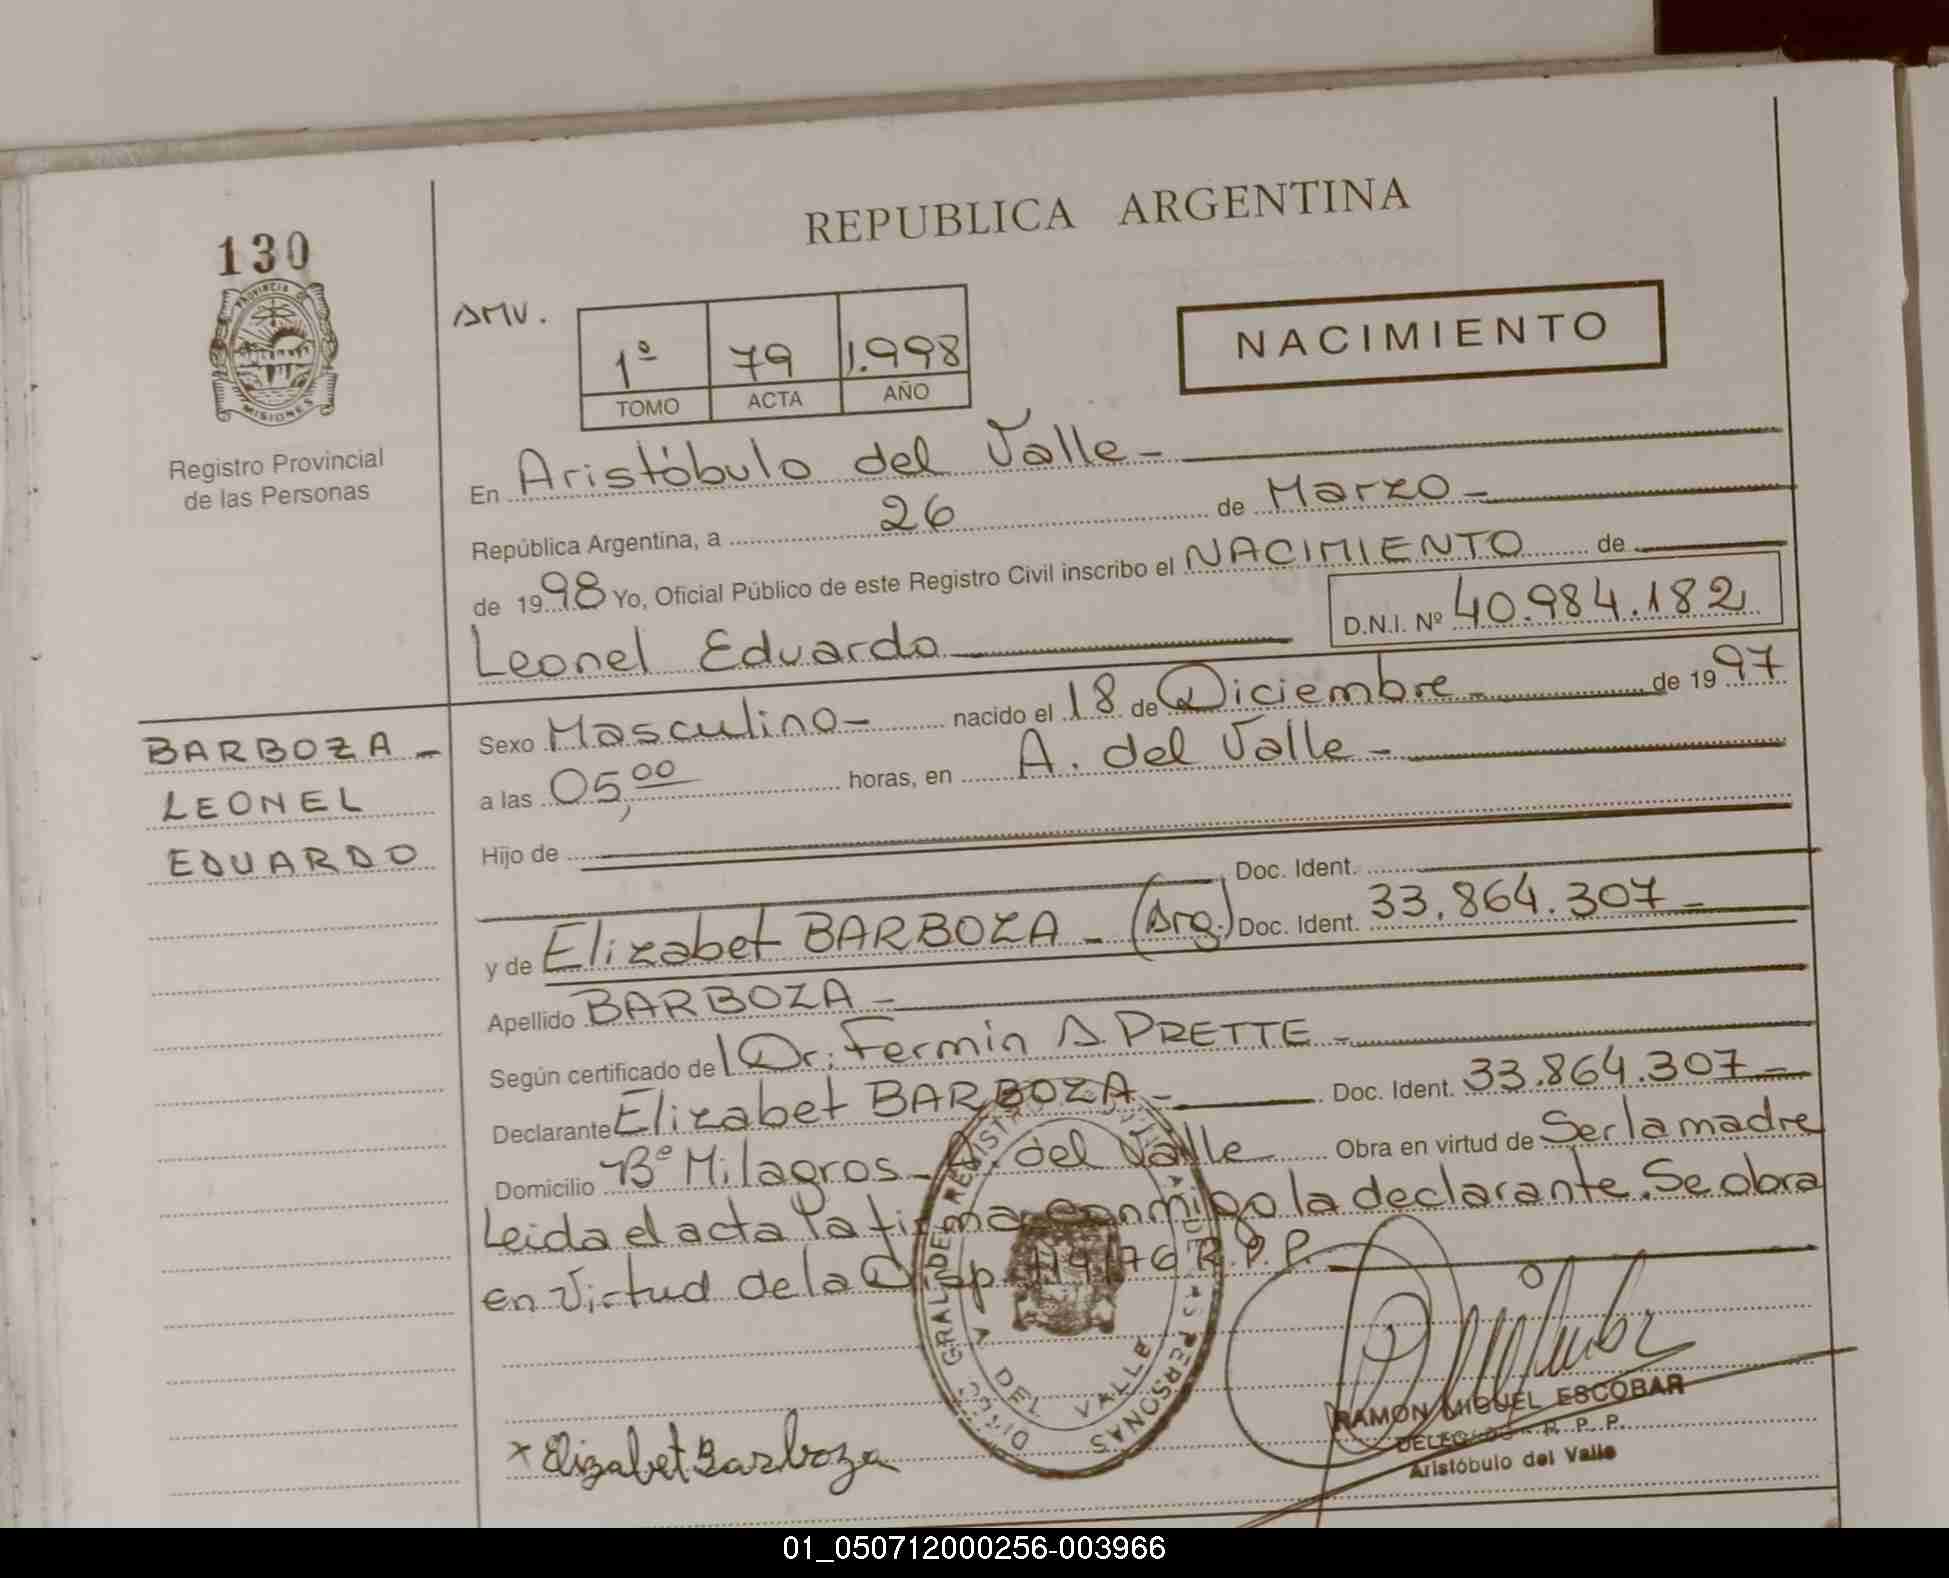 REPUBLICA ARGENTINA
130
PROVINCIA DE
MISIONES
Registro Provincial
de las Personas
AMV.
1º 79 1.998
TOMO ACTA AÑO
NACIMIENTO
En Aristóbulo del Valle -
República Argentina, a 26 de Marzo -
de 1998 Yo, Oficial Público de este Registro Civil inscribo el NACIMIENTO de
Leonel Eduardo D.N.I. Nº 40.984.182
BARBOZA -
LEONEL
EDUARDO
Sexo Masculino - nacido el 18 de Diciembre - de 1997
a las 05,00 horas, en A. del Valle -
Hijo de
Doc. Ident.
y de Elizabet BARBOZA - (Arg.) Doc. Ident. 33.864.307 -
Apellido BARBOZA -
Según certificado de Dr. Fermin A. PRETTE -
Declarante Elizabet BARBOZA - Doc. Ident. 33.864.307 -
Domicilio Bº Milagros - A. del Valle Obra en virtud de Ser la madre
Leida el acta la firma conmigo la declarante. Se obra
en Virtud de la Disp. 119/76 R.P.P.
A DEL VALLE
x Elizabet Barboza
RAMON MIGUEL ESCOBAR
DELEGADO R. P. P.
Aristóbulo del Valle
01_050712000256-003966